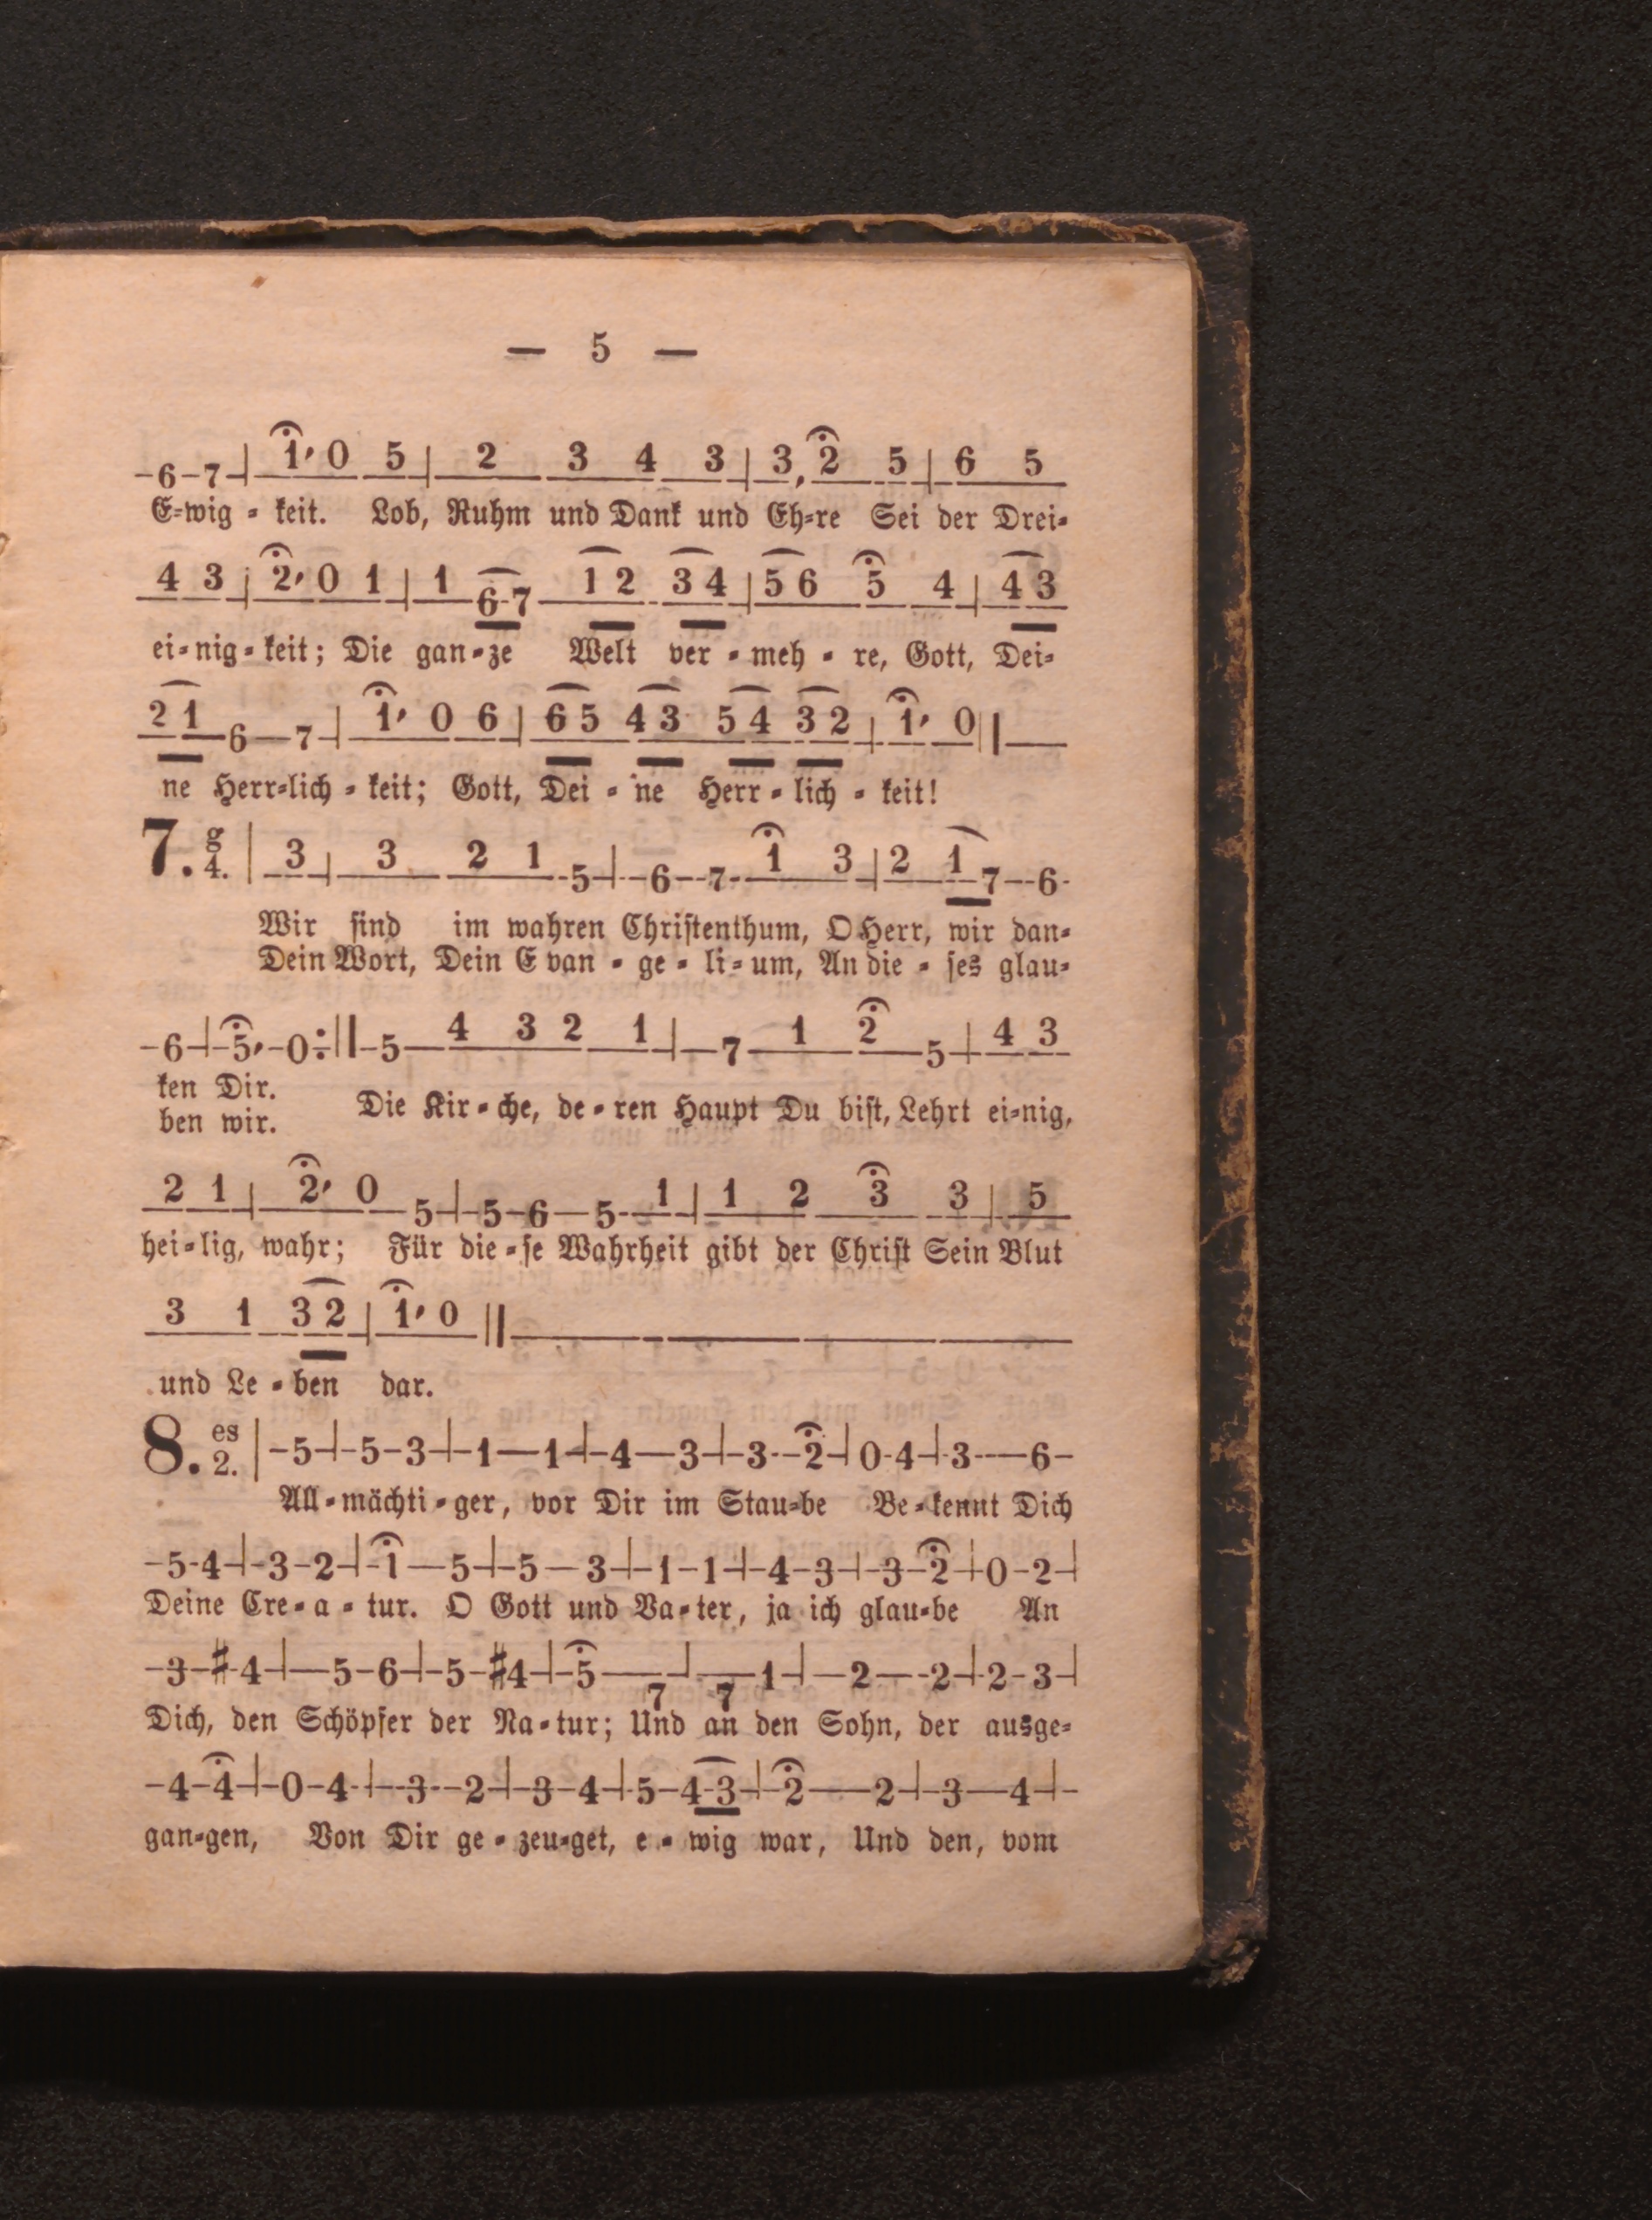 — 5 —
-6-7-| 1, 0 5 | 2 3 4 3 | 3, 2 5 | 6 5
E=wig = keit. Lob, Ruhm und Dank und Eh=re Sei der Drei=
4 3 | 2, 0 1 | 1 6-7 1 2 3 4 | 5 6 5 4 | 4 3
ei=nig=keit; Die gan=ze Welt ver = meh = re, Gott, Dei=
2 1 6—7-| 1, 0 6 | 6 5 4 3 5 4 3 2 | 1, 0 ||
ne Herr=lich = keit; Gott, Dei = ne Herr = lich = keit!
7. g 4. | 3 | 3 2 1 -5-|-6--7- 1 3 | 2 1 7--6-
Wir sind im wahren Christenthum, O Herr, wir dan=
Dein Wort, Dein Evan = ge = li=um, An die = ses glau=
-6-|-5,-0:||-5— 4 3 2 1 |—7— 1 2 —5-| 4 3
ken Dir.
ben wir.
Die Kir=che, de=ren Haupt Du bist, Lehrt ei=nig,
2 1 | 2, 0 5-|-5-6—5- 1 | 1 2 3 3 | 5
hei=lig, wahr; Für die=se Wahrheit gibt der Christ Sein Blut
3 1 3 2 | 1, 0 ||
und Le = ben dar.
8. es 2. |-5-|-5-3-|-1—1-|-4—3-|-3--2-| 0-4-|-3---6-
All=mächti=ger, vor Dir im Stau=be Be=kennt Dich
-5-4-|-3-2-|-1—5-|-5—3-|-1-1-|-4-3-|-3-2-|-0-2-|
Deine Cre=a=tur. O Gott und Va=ter, ja ich glau=be An
-3-#-4-|—5-6-|-5-#4-|-5—7-|—7—1-|—2—-2-|-2-3-|
Dich, den Schöpfer der Na=tur; Und an den Sohn, der ausge=
-4-4-|-0-4-|--3--2-|-3-4-|-5-4-3-|-2—2-|-3—4-|-
gan=gen, Von Dir ge = zeu=get, e = wig war, Und den, vom